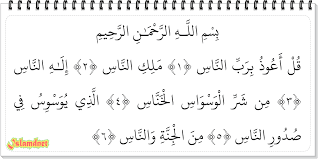 بِسْمِ اللَّـهِ الرَّحْمَـٰنِ الرَّحِيمِ
قُلْ أَعُوذُ بِرَبِّ النَّاسِ ﴿١﴾ مَلِكِ النَّاسِ ﴿٢﴾ إِلَـٰهِ النَّاسِ
﴿٣﴾ مِن شَرِّ الْوَسْوَاسِ الْخَنَّاسِ ﴿٤﴾ الَّذِي يُوَسْوِسُ فِي
صُدُورِ النَّاسِ ﴿٥﴾ مِنَ الْجِنَّةِ وَالنَّاسِ ﴿٦﴾
Islamdnet